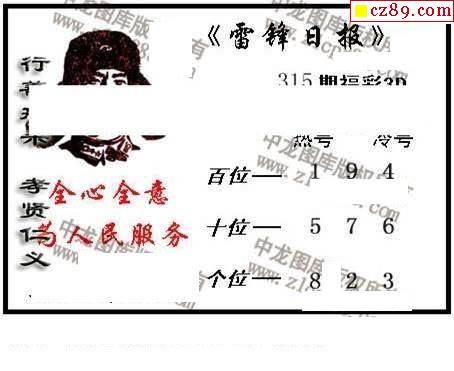 cz89.com
《雷锋日报》
315期福彩3D
热号 冷号
百位— 1 9 4
十位— 5 7 6
个位— 8 2 3
孝贤仁义
全心全意
为人民服务
中龙图库版
www.z